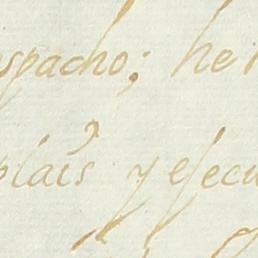 spacho; he
plais y execu